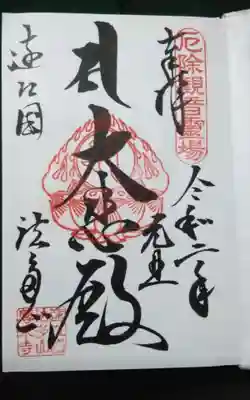 厄除観音霊場
奉拝
令和二年
元旦
大悲殿
遠江国
法多山